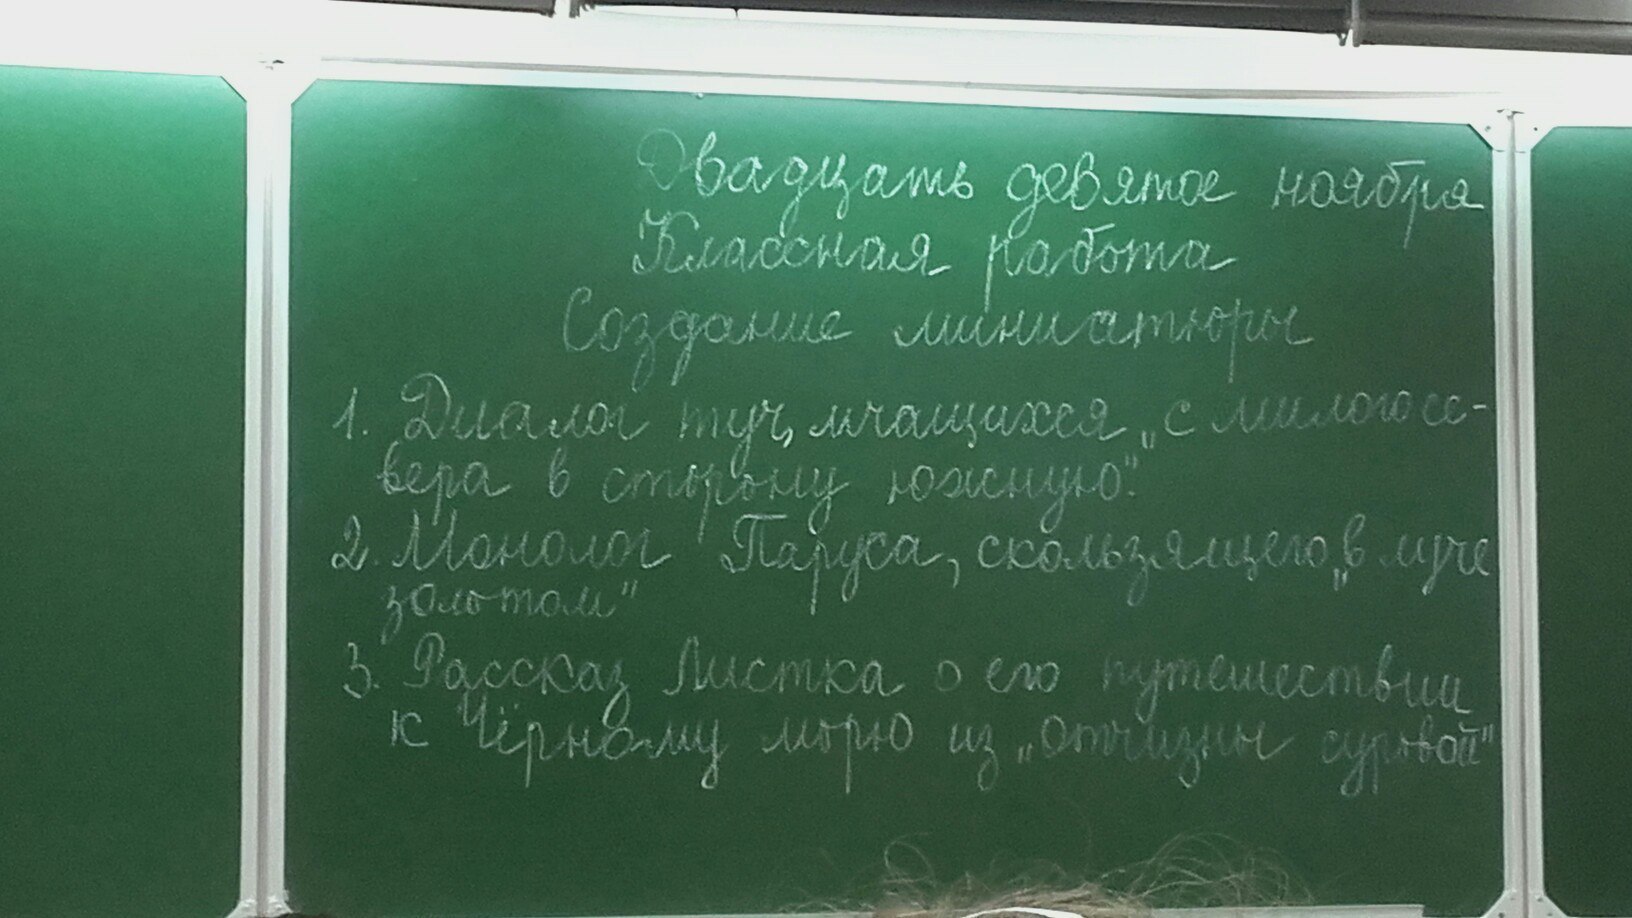 Двадцать девятое ноября
Классная работа
Создание миниатюры
1. Диалог туч, мчащихся „с милого се-
вера в сторону южную".
2. Монолог Паруса, скользящего „в луче
золотом"
3. Рассказ Листка о его путешествии
к Чёрному морю из „отчизны суровой"